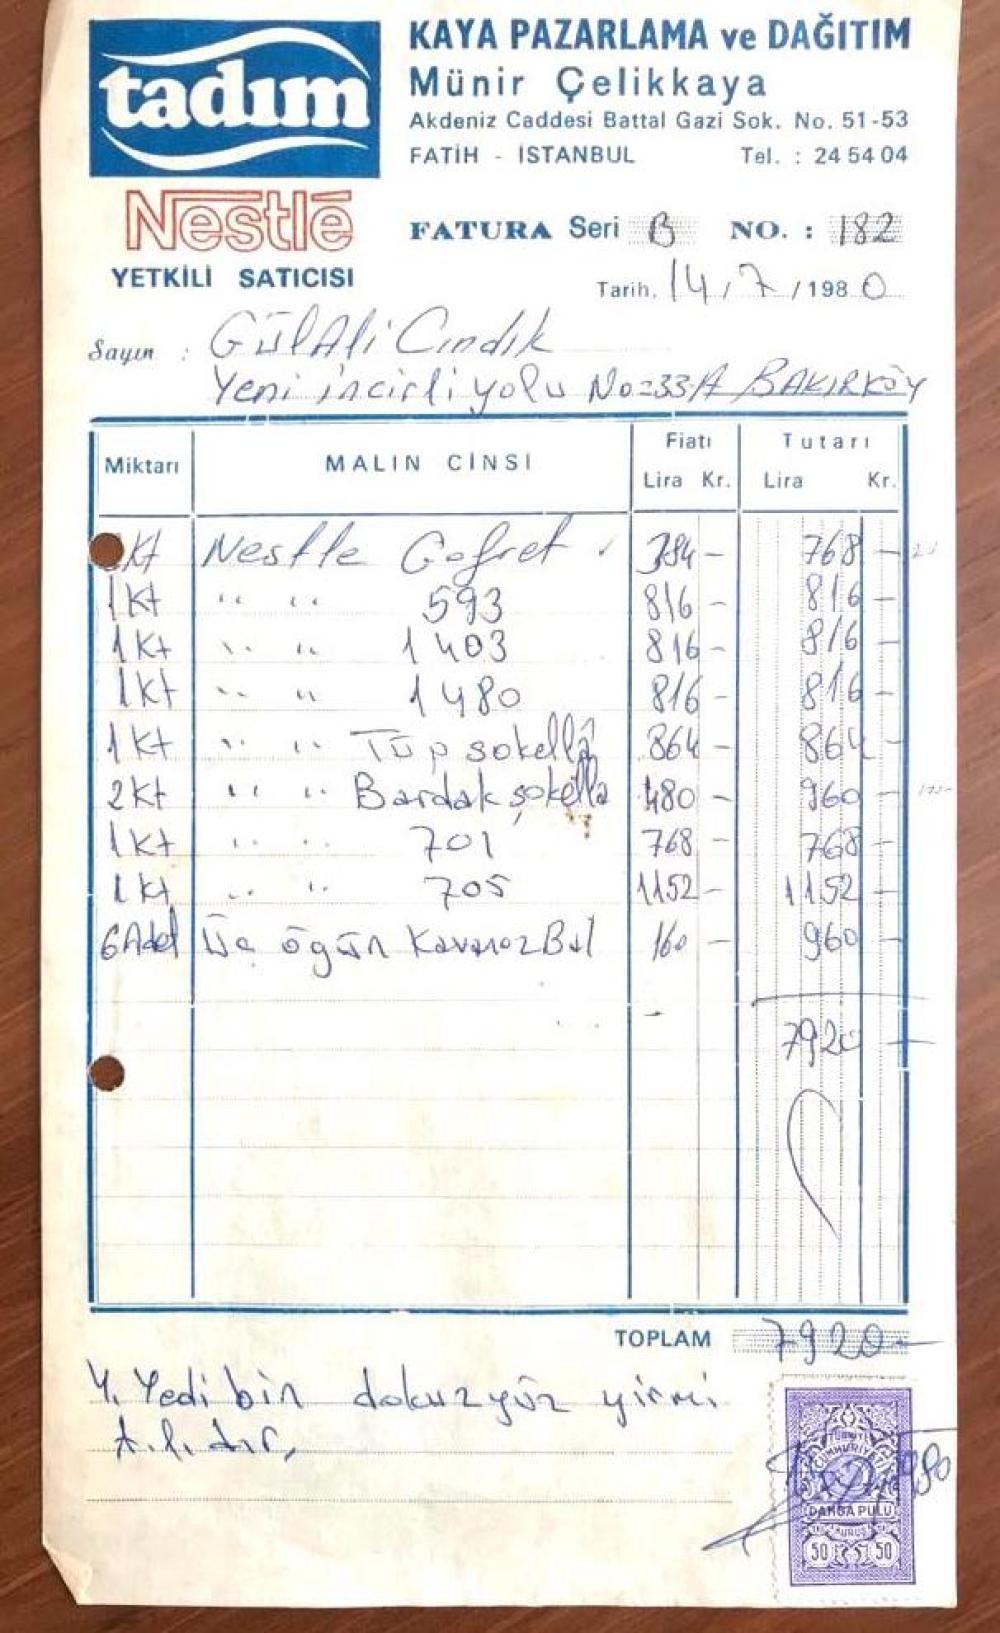 tadım
KAYA PAZARLAMA ve DAĞITIM
Münir Çelikkaya
Akdeniz Caddesi Battal Gazi Sok. No. 51-53
FATİH - İSTANBUL Tel. : 24 54 04
Nestlé
YETKİLİ SATICISI
FATURA Seri B NO. : 182
Tarih. 14.7/1980
Sayın : Gülali Cındık
Yeni incirli yolu No=33A BAKIRKÖY
Miktarı MALIN CİNSİ Fiatı Tutarı
Lira Kr. Lira Kr.
Kt Nestle Gofret 384 - 768 -
1Kt " " 593 816 - 816 -
1Kt " " 1403 816 - 816 -
1Kt " " 1480 816 - 816 -
1Kt " " Tüp şokella 864 - 864 -
2Kt " " Bardak şokella 480 - 960 -
1Kt " " 701 768 - 768 -
1Kt " " 705 1152 - 1152 -
6 Adet Üç öğün Kavanoz Bal 160 - 960
7920 -
TOPLAM 7920 -
Y. Yedi bin dokuzyüz yirmi
t.l. dır.
CUMHURİYETİ
DAMGA PULU
KURUŞ
50 50